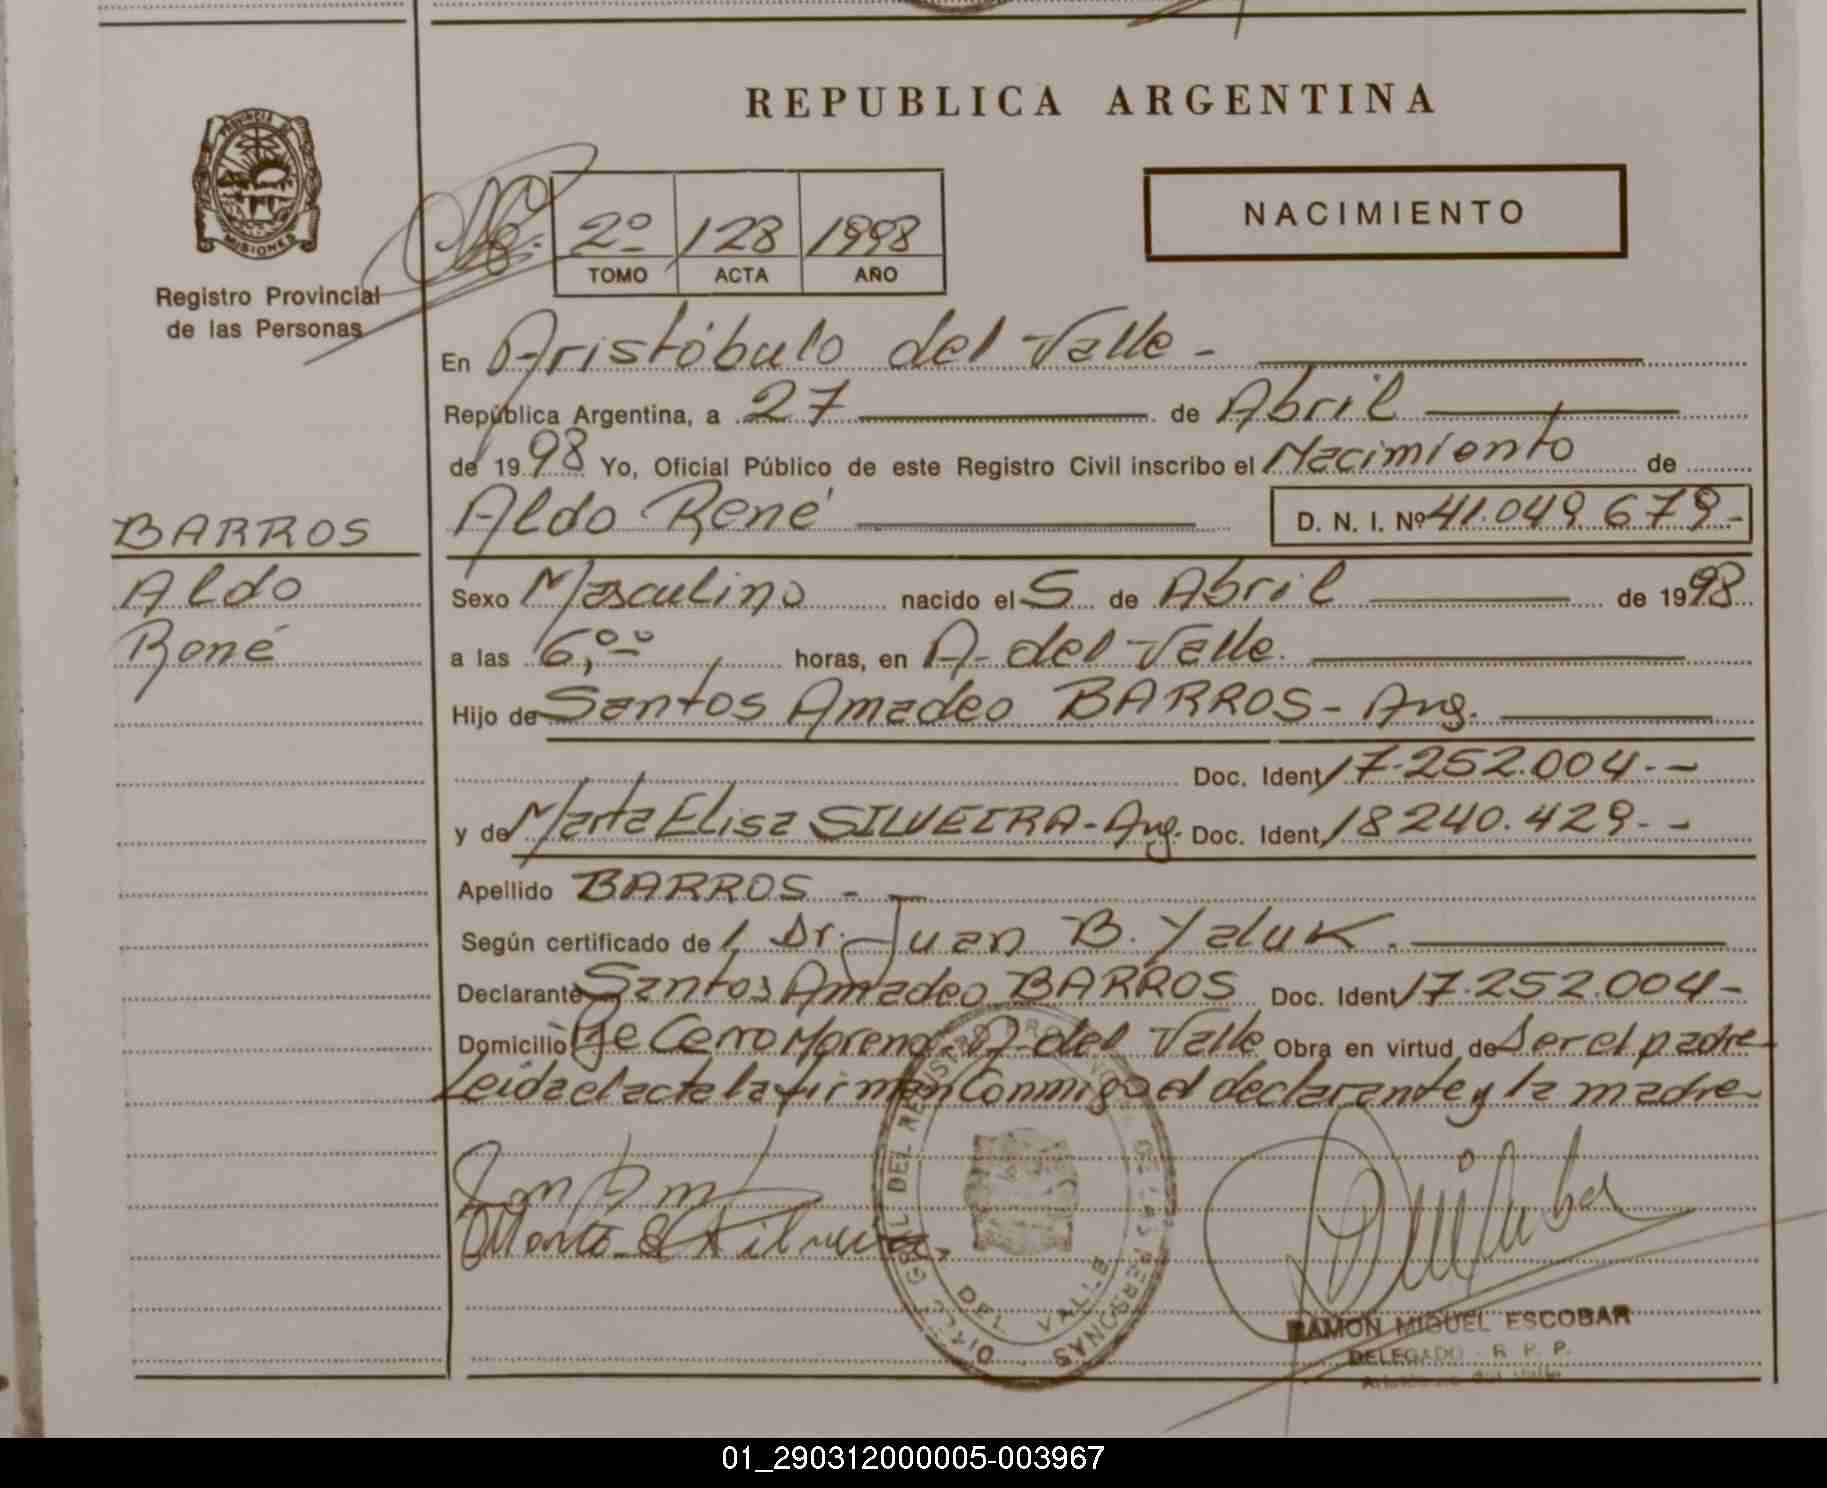 REPUBLICA ARGENTINA
PROVINCIA DE
MISIONES
Registro Provincial
de las Personas
2º 128 1998
TOMO ACTA AÑO
NACIMIENTO
En Aristóbulo del Valle -
República Argentina, a 27 de Abril
de 1998 Yo, Oficial Público de este Registro Civil inscribo el Nacimiento de
Aldo René D. N. I. Nº 41.049.679-
BARROS
Aldo
René
Sexo Masculino nacido el 5 de Abril de 1998
a las 6,00 horas, en A. del Valle.
Hijo de Santos Amadeo BARROS - Arg.
Doc. Ident 17.252.004.--
y de Marta Elisa SILVEIRA - Arg. Doc. Ident 18240.429.--
Apellido BARROS -
Según certificado de l Dr. Juan B. Yaluk.
Declarante Santos Amadeo BARROS Doc. Ident 17.252.004-
Domicilio Pje Cerro Moreno. A. del Valle Obra en virtud de Ser el padre
Leida el acta la firman conmigo el declarante y la madre
DEL VALLE
RAMON MIGUEL ESCOBAR
DELEGADO - R. P. P.
01_290312000005-003967